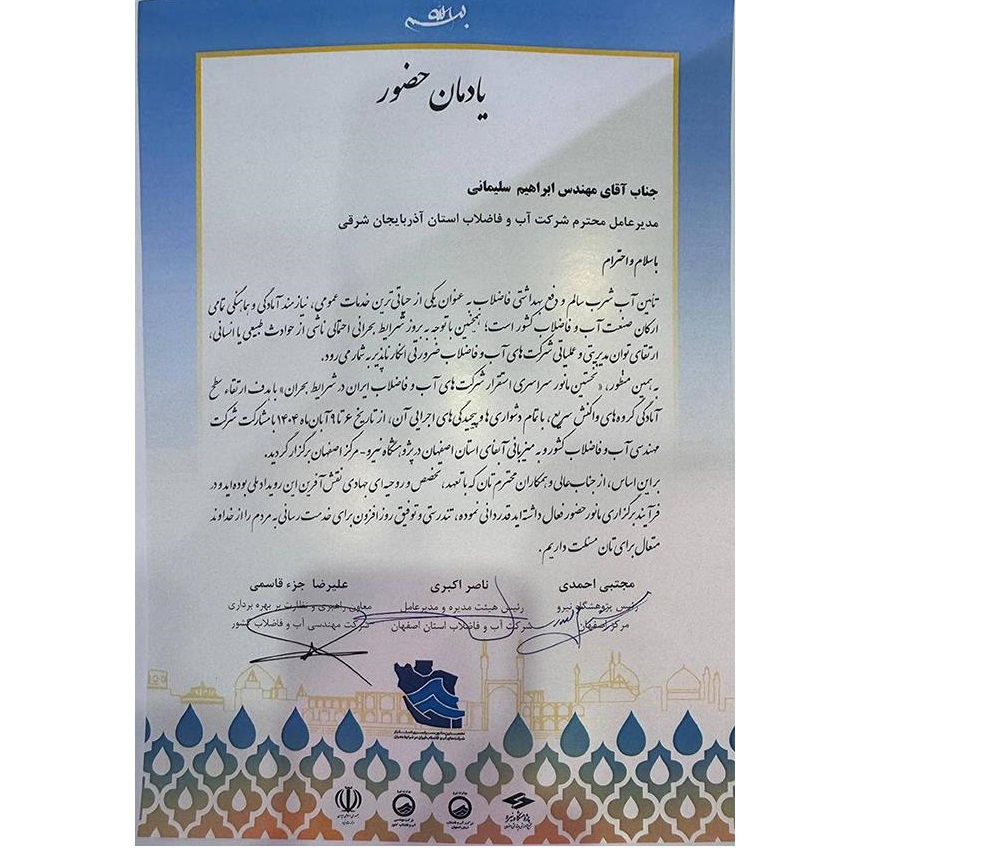 بسم الله
یادمان حضور
جناب آقای مهندس ابراهیم سلیمانی
مدیرعامل محترم شرکت آب و فاضلاب استان آذربایجان شرقی
باسلام و احترام
تأمین آب شرب سالم و دفع بهداشتی فاضلاب به عنوان یکی از حیاتی‌ترین خدمات عمومی، نیازمند آمادگی و هماهنگی تمامی
ارکان صنعت آب و فاضلاب کشور است؛ همچنین با توجه به بروز شرایط بحرانی احتمالی ناشی از حوادث طبیعی یا انسانی،
ارتقای توان مدیریتی و عملیاتی شرکت‌های آب و فاضلاب ضرورتی انکارناپذیر به شمار می‌رود.
به همین منظور، «نخستین مانور سراسری استقرار شرکت‌های آب و فاضلاب ایران در شرایط بحران» با هدف ارتقاء سطح
آمادگی گروه‌های واکنش سریع، با تمام دشواری‌ها و پیچیدگی‌های اجرایی آن، از تاریخ ۶ تا ۹ آبان‌ماه ۱۴۰۴ با مشارکت شرکت
مهندسی آب و فاضلاب کشور و به میزبانی آبفای استان اصفهان در پژوهشگاه نیرو - مرکز اصفهان برگزار گردید.
براین اساس، از جناب‌عالی و همکاران محترم‌تان که با تعهد، تخصص و روحیه‌ای جهادی نقش‌آفرین این رویداد ملی بوده‌اید و در
فرآیند برگزاری مانور حضور فعال داشته‌اید قدردانی نموده، تندرستی و توفیق روزافزون برای خدمت‌رسانی به مردم را از خداوند
متعال برای‌تان مسئلت داریم.
مجتبی احمدی ناصر اکبری علیرضا جزء قاسمی
رئیس پژوهشگاه نیرو رئیس هیئت مدیره و مدیرعامل معاون راهبری و نظارت بر بهره برداری
مرکز اصفهان شرکت آب و فاضلاب استان اصفهان شرکت مهندسی آب و فاضلاب کشور
نخستین مانور سراسری استقرار
شرکت‌های آب و فاضلاب ایران در شرایط بحران
پژوهشگاه نیرو